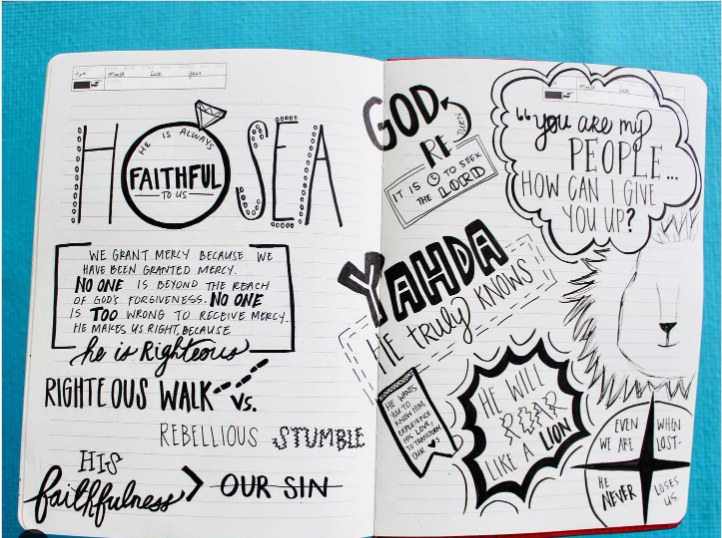 Month Date Year
HOSEA
HE IS ALWAYS
FAITHFUL
TO US
WE GRANT MERCY BECAUSE WE
HAVE BEEN GRANTED MERCY.
NO ONE IS BEYOND THE REACH
OF GOD'S FORGIVENESS. NO ONE
IS TOO WRONG TO RECEIVE MERCY.
HE MAKES US RIGHT, BECAUSE
he is Righteous
RIGHTEOUS WALK
VS.
REBELLIOUS STUMBLE
HIS
faithfulness > OUR SIN
GOD,
RE
TURN
IT IS TO SEEK
THE LORD
Month Date
"you are my
PEOPLE...
HOW CAN I GIVE
YOU UP?
YAHDA
HE truly KNOWS
HE WANTS
YOU TO
KNOW HIM,
EXPERIENCE
HIS LOVE,
TO TRANSFORM
OUR ♥S
HE WILL
ROAR
LIKE A LION
EVEN WHEN
WE ARE LOST-
HE LOSES
NEVER US